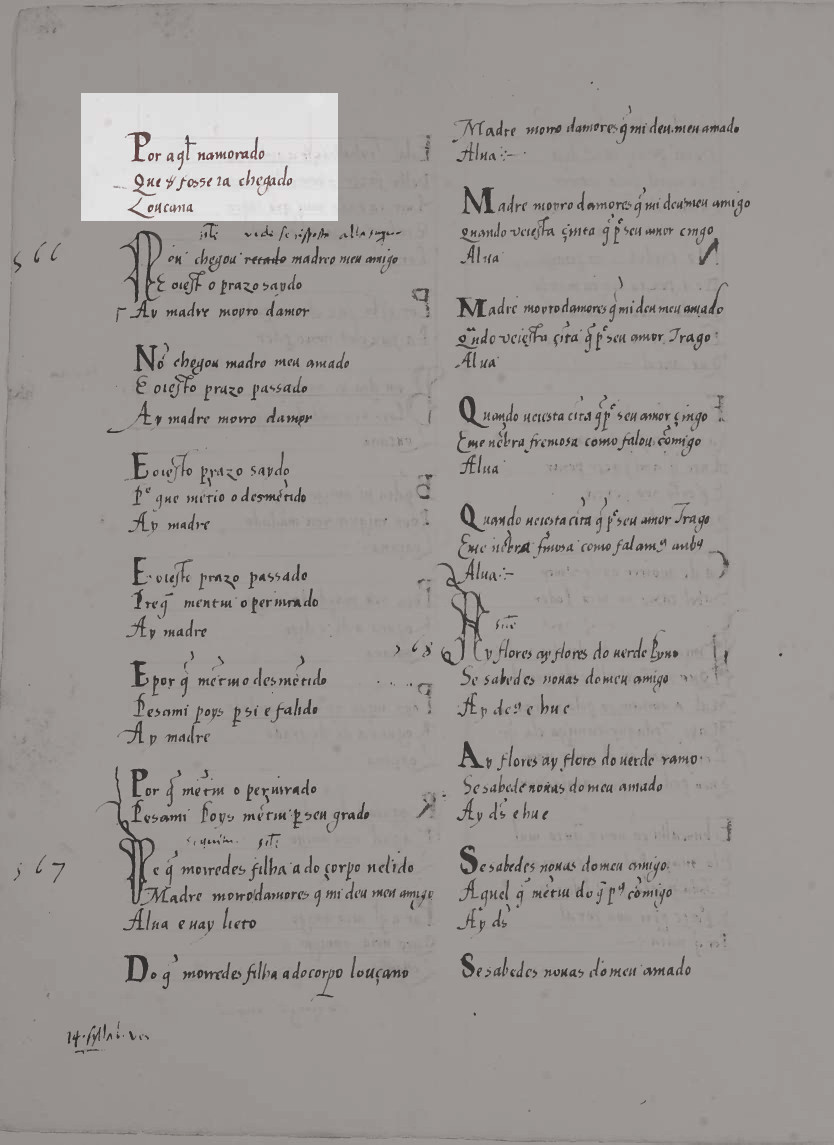 Por aql̄ namorado
Que ñ fosse ia chegado
Loucana
566
Nōn chegou recado madreo meu amigo
E oiest̄o prazo saydo
Ay madre moyro damor
Nō chegou madro meu amado
E oiest̄o prazo passado
Ay madre moiro damor
E oiest̄o prazo saydo
Po que mētio o desmētido
Ay madre
E oiest̄o prazo passado
Preq̄ mentiu o periurado
Ay madre
E por q̄ mētiuo desmētido
Pesami poys p si e falido
Ay madre
Por q̄ mētiu o periurado
Pesami Poys mētiu p seu grado
567
De q̄ morredes filha a do corpo uelido
Madre moirodamores q̄ mi deu meu amigo
Alua e uay lieto
Do q̄ morredes filha a do corpo louçano
Madre moiro damores q̄ mi deu.meu amado
Alua
Madre moyro damores q̄ mi deu meu amigo
quando ueiest̄a çinta q̄ po seu amor cingo
Alua
Madre moyro damores q̄ mi deu meu amado
Qn̄do ueiest̄a çīta q̄ po seu amor Trago
Alua
Quando ueiesta cīta q̄ po seu amor çingo
Eme nēbra fremosa como falou cōmigo
Alua
Quando ueiesta cīta q̄ po seu amor Trago
Eme nēbra fm̄osa como falam9 anb9
Alua
568
Ay flores ay flores do uerde Pyno
Se sabedes nouas do meu amigo
Ay de9 e hu e
Ay flores ay flores do uerde ramo
Se sabede nouas do meu amado
Ay ds̄ e hu e
Se sabedes nouas do meu amigo
Aquel q̄ mētiu do q̄ p9 cōmigo
Ay ds̄
Se sabedes nouas do meu amado